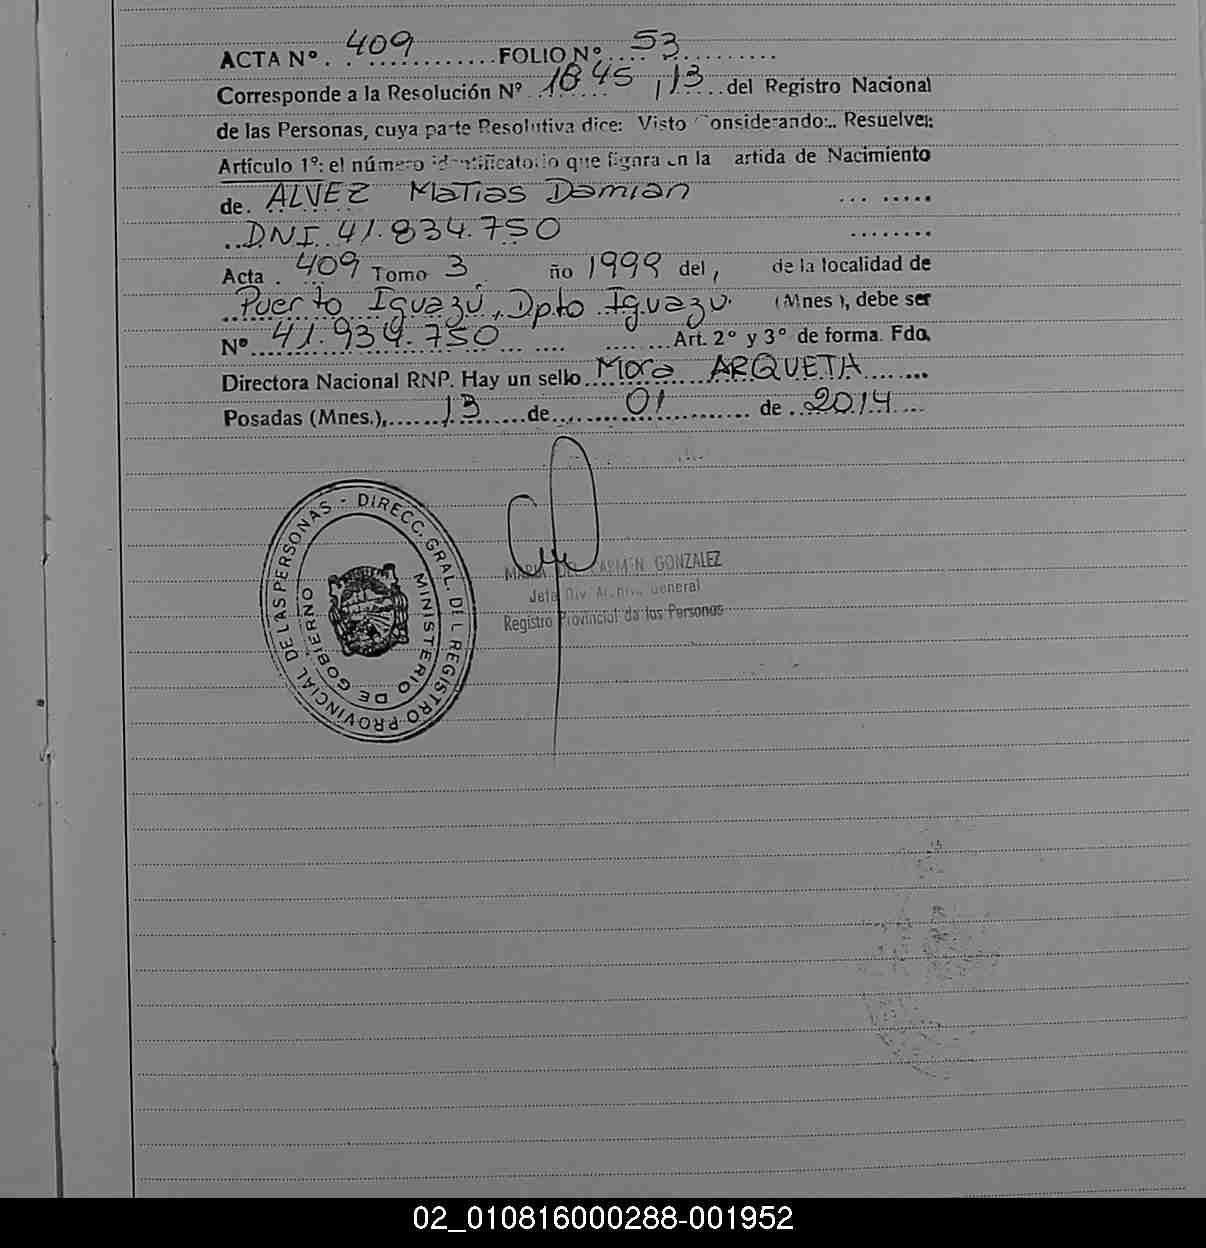 ACTA Nº. 409 FOLIO Nº 53
Corresponde a la Resolución Nº 1845 / 13 del Registro Nacional
de las Personas, cuya parte Resolutiva dice: Visto Considerando:.. Resuelve:
Artículo 1º: el número identificatorio que figura en la artida de Nacimiento
de. ALVEZ Matias Damian
DNI 41.834.750
Acta 409 Tomo 3 ño 1999 del, de la localidad de
Puerto Iguazú, Dpto Iguazu. (Mnes), debe ser
Nº 41.934.750 Art. 2º y 3º de forma. Fdo.
Directora Nacional RNP. Hay un sello Mora ARQUETA
Posadas (Mnes.), 13 de 01 de 2014
DIRECC. GRAL. DEL REGISTRO PROVINCIAL DE LAS PERSONAS -
MINISTERIO DE GOBIERNO
MARIA DEL CARMEN GONZALEZ
Jefa Div. Archivo General
Registro Provincial de las Personas
02_010816000288-001952